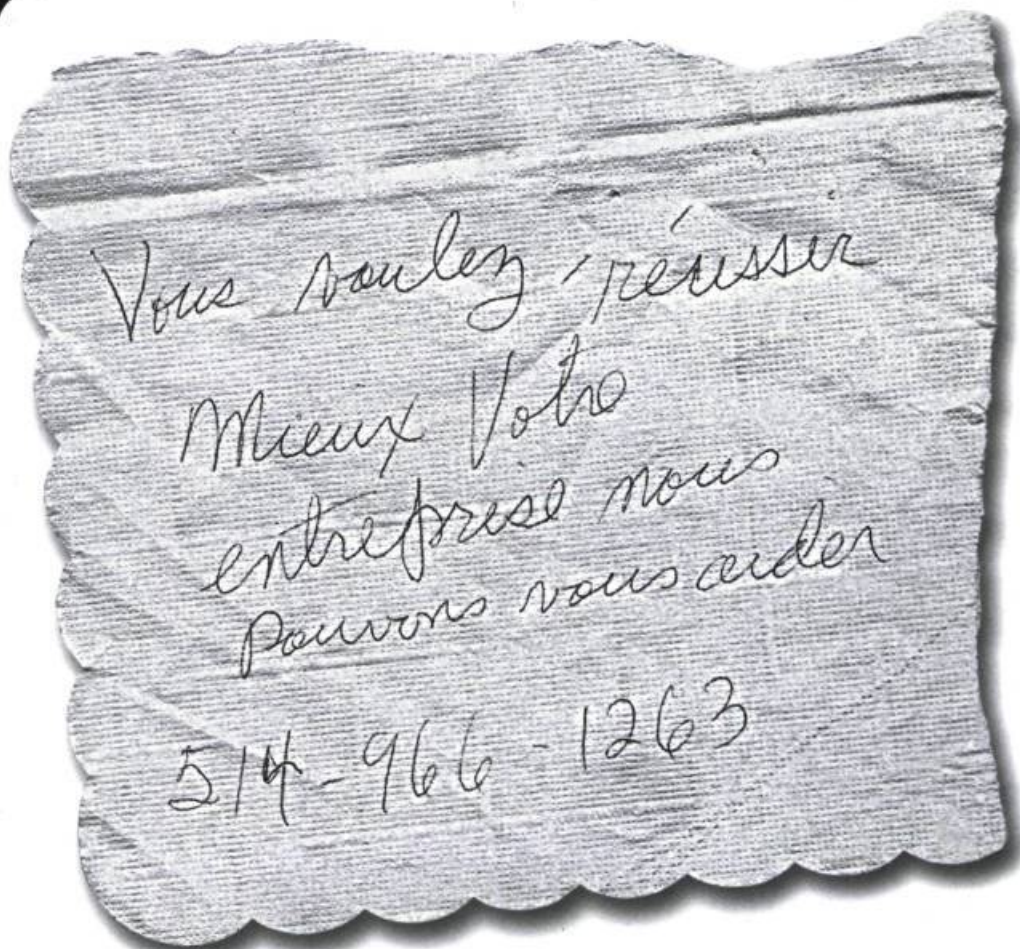 Vous voulez réussir
Mieux Votre
entreprise nous
Pouvons vous aider
514-966-1263